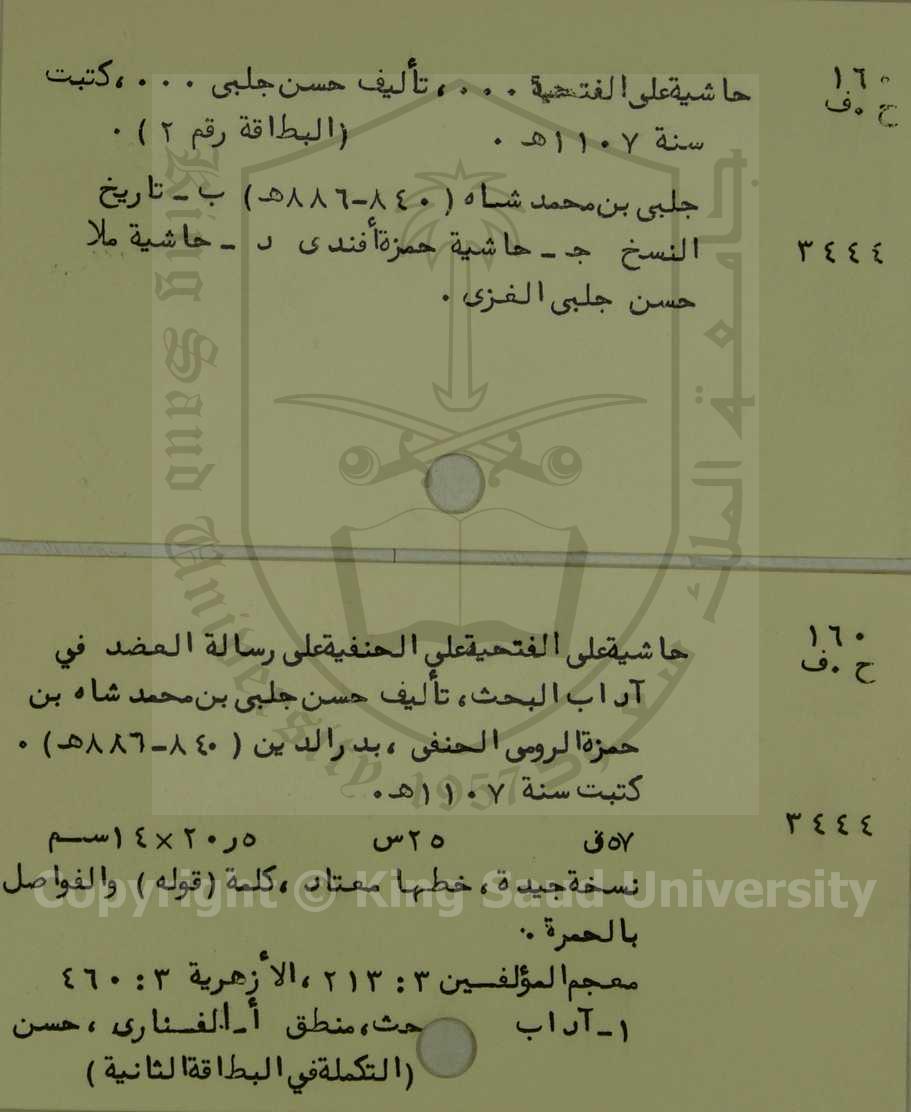 ١٦٠ حاشية على الفتحية ٠٠٠، تأليف حسن جلبى ٠٠٠، كتبت
ح ٠ف سنة ١١٠٧هـ ٠ (البطاقة رقم ٢) ٠
جلبى بن محمد شاه (٨٤٠-٨٨٦هـ) ب - تاريخ
٣٤٤٤ النسخ جـ - حاشية حمزة أفندى د - حاشية ملا
حسن جلبى الغزى ٠
١٦٠ حاشية على الفتحية على الحنفية على رسالة العضد في
ح ٠ف آداب البحث، تأليف حسن جلبى بن محمد شاه بن
حمزة الرومى الحنفى ، بدر الدين (٨٤٠-٨٨٦هـ) ٠
كتبت سنة ١١٠٧هـ٠
٣٤٤٤ ٥٧ق ٢٥س ٥ر٢٠×١٤سم
نسخة جيدة، خطها معتاد ،كلمة (قوله) والفواصل
بالحمرة ٠
معجم المؤلفين ٣ : ٢١٣ ، الأزهرية ٣ : ٤٦٠
١-آداب حث، منطق أ-الفنارى ، حسن
(التكملة في البطاقة الثانية)
King Saud University
1957
جامعة الملك سعود
Copyright © King Saud University